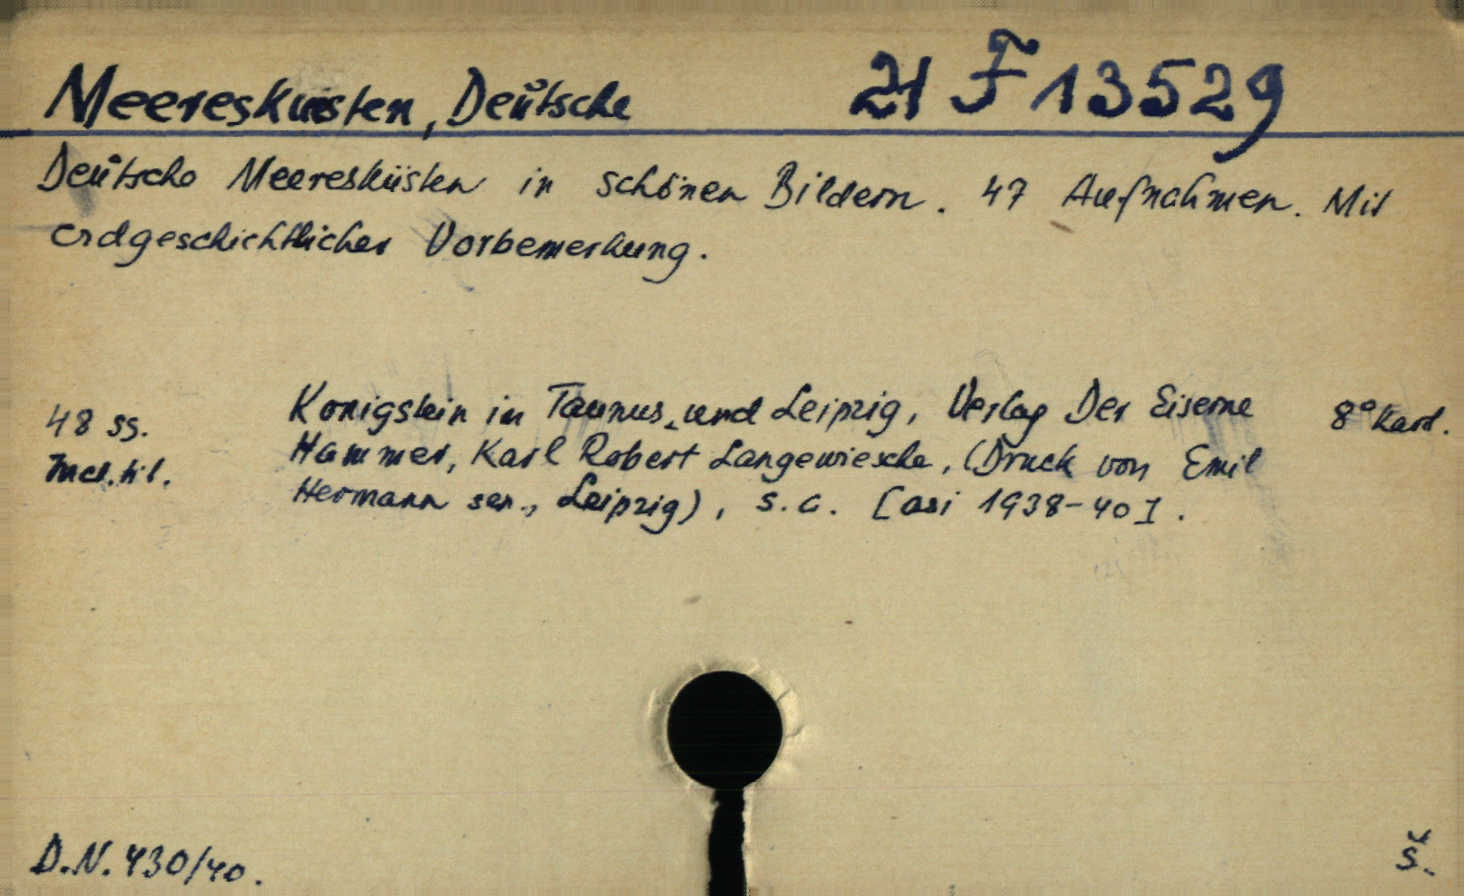 Meeresküsten, Deutsche 21 F 13529
Deutsche Meeresküsten in schönen Bildern. 47 Aufnahmen. Mit
erdgeschichtlicher Vorbemerkung.
48 ss. Königstein im Taunus und Leipzig, Verlag Der Eiserne 8° Kart.
Hammer, Karl Robert Langewiesche, (Druck von Emil
Hermann sen., Leipzig), s. a. [asi 1938-40].
D.N. 430/40. Š.